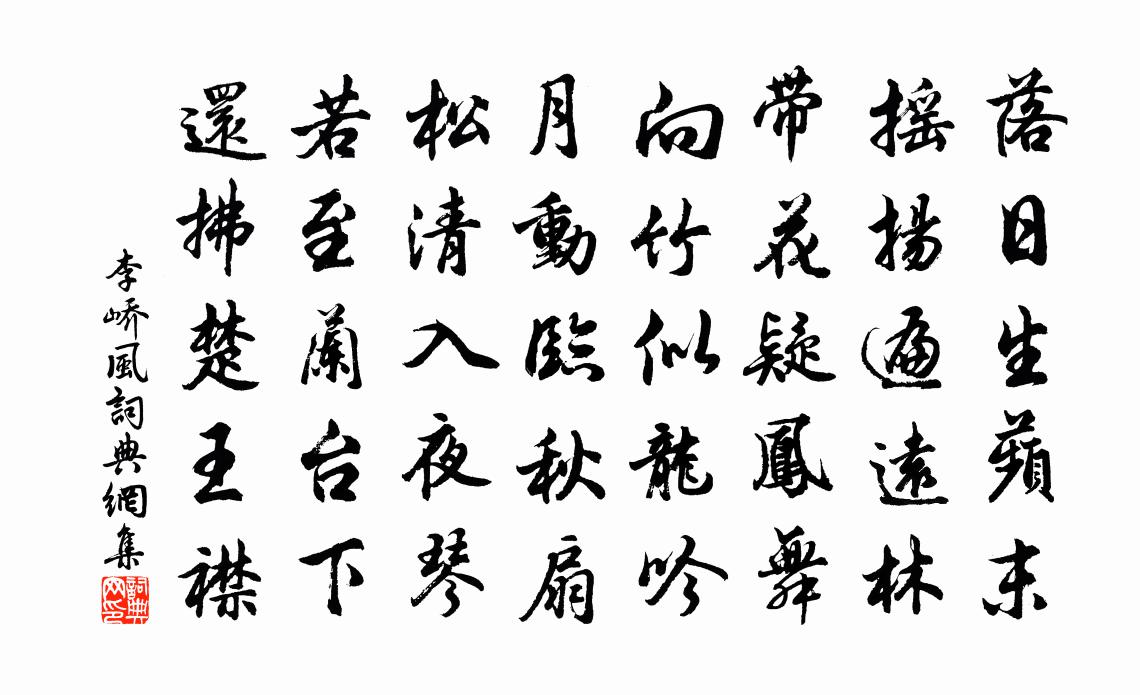 落日生蘋末
摇揚遍遠林
帶花疑鳳舞
向竹似龍吟
月動臨秋扇
松清入夜琴
若至蘭台下
還拂楚王襟
李嶠風詞典網集
詞典网印